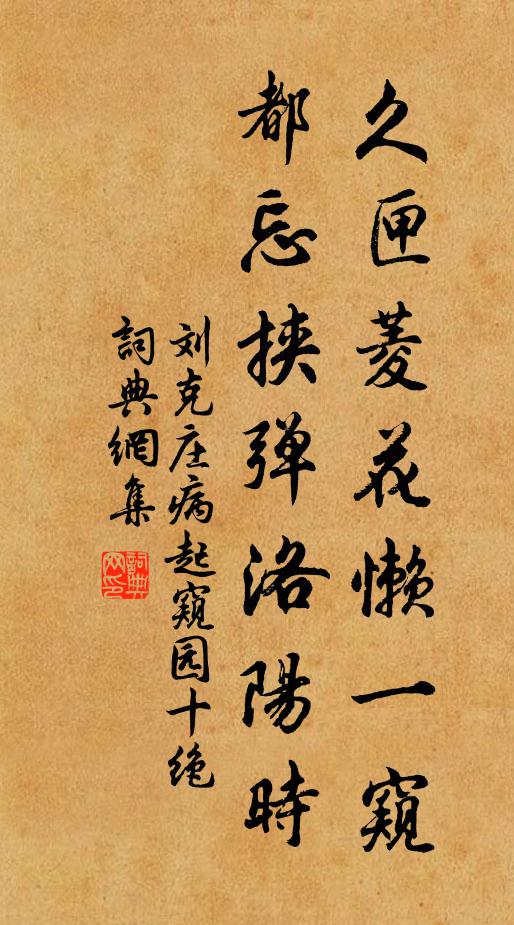 久匣菱花懒一窥
都忘挟弹洛陽時
刘克庄病起窺园十绝
詞典網集
詞典网印